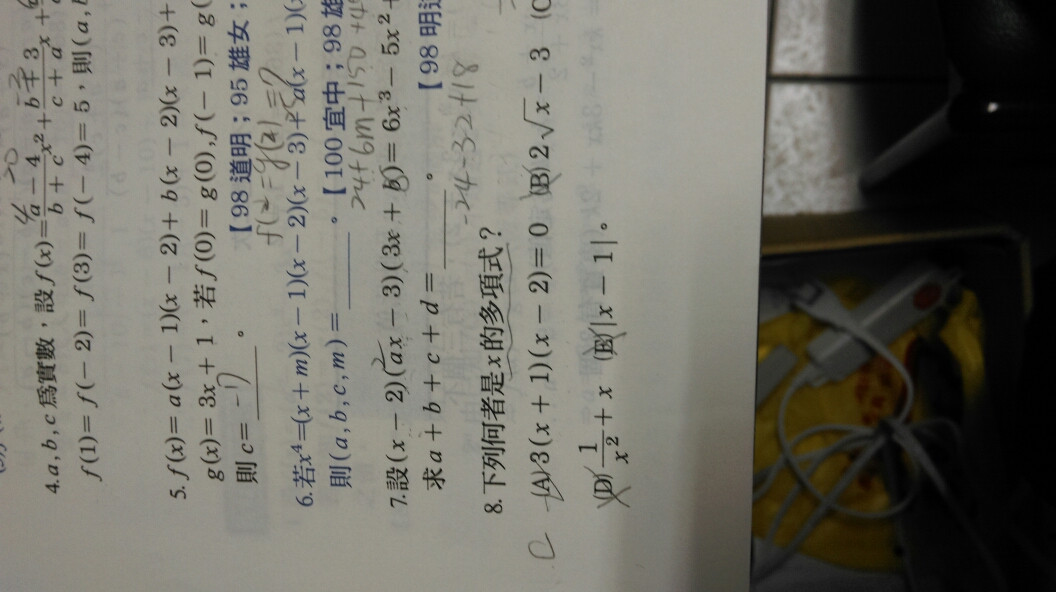 4.a, b, c 為實數,設 f(x) = \frac{a-4}{b+c}x² + \frac{b+3}{c+a}x +
f(1) = f(-2) = f(3) = f(-4) = 5,則(a, b,
5. f(x) = a(x-1)(x-2) + b(x-2)(x-3) +
g(x) = 3x + 1,若 f(0) = g(0), f(-1) = g(
則 c = -17 。
【98 道明;95 雄女;
f(2)=g(2)=7
6.若x⁴=(x+m)(x-1)(x-2)(x-3)+a(x-1)(
則(a, b, c, m) = ______。【100 宜中;98 雄
24+6m+150+
7.設(x-2)(ax-3)(3x+b) = 6x³-5x²+
求 a+b+c+d = ______。
【98 明道
-24-32+18
8.下列何者是x的多項式?
C (A) 3(x+1)(x-2)=0 (B) 2√x-3 (C
(D) \frac{1}{x²}+x (E) |x-1|。